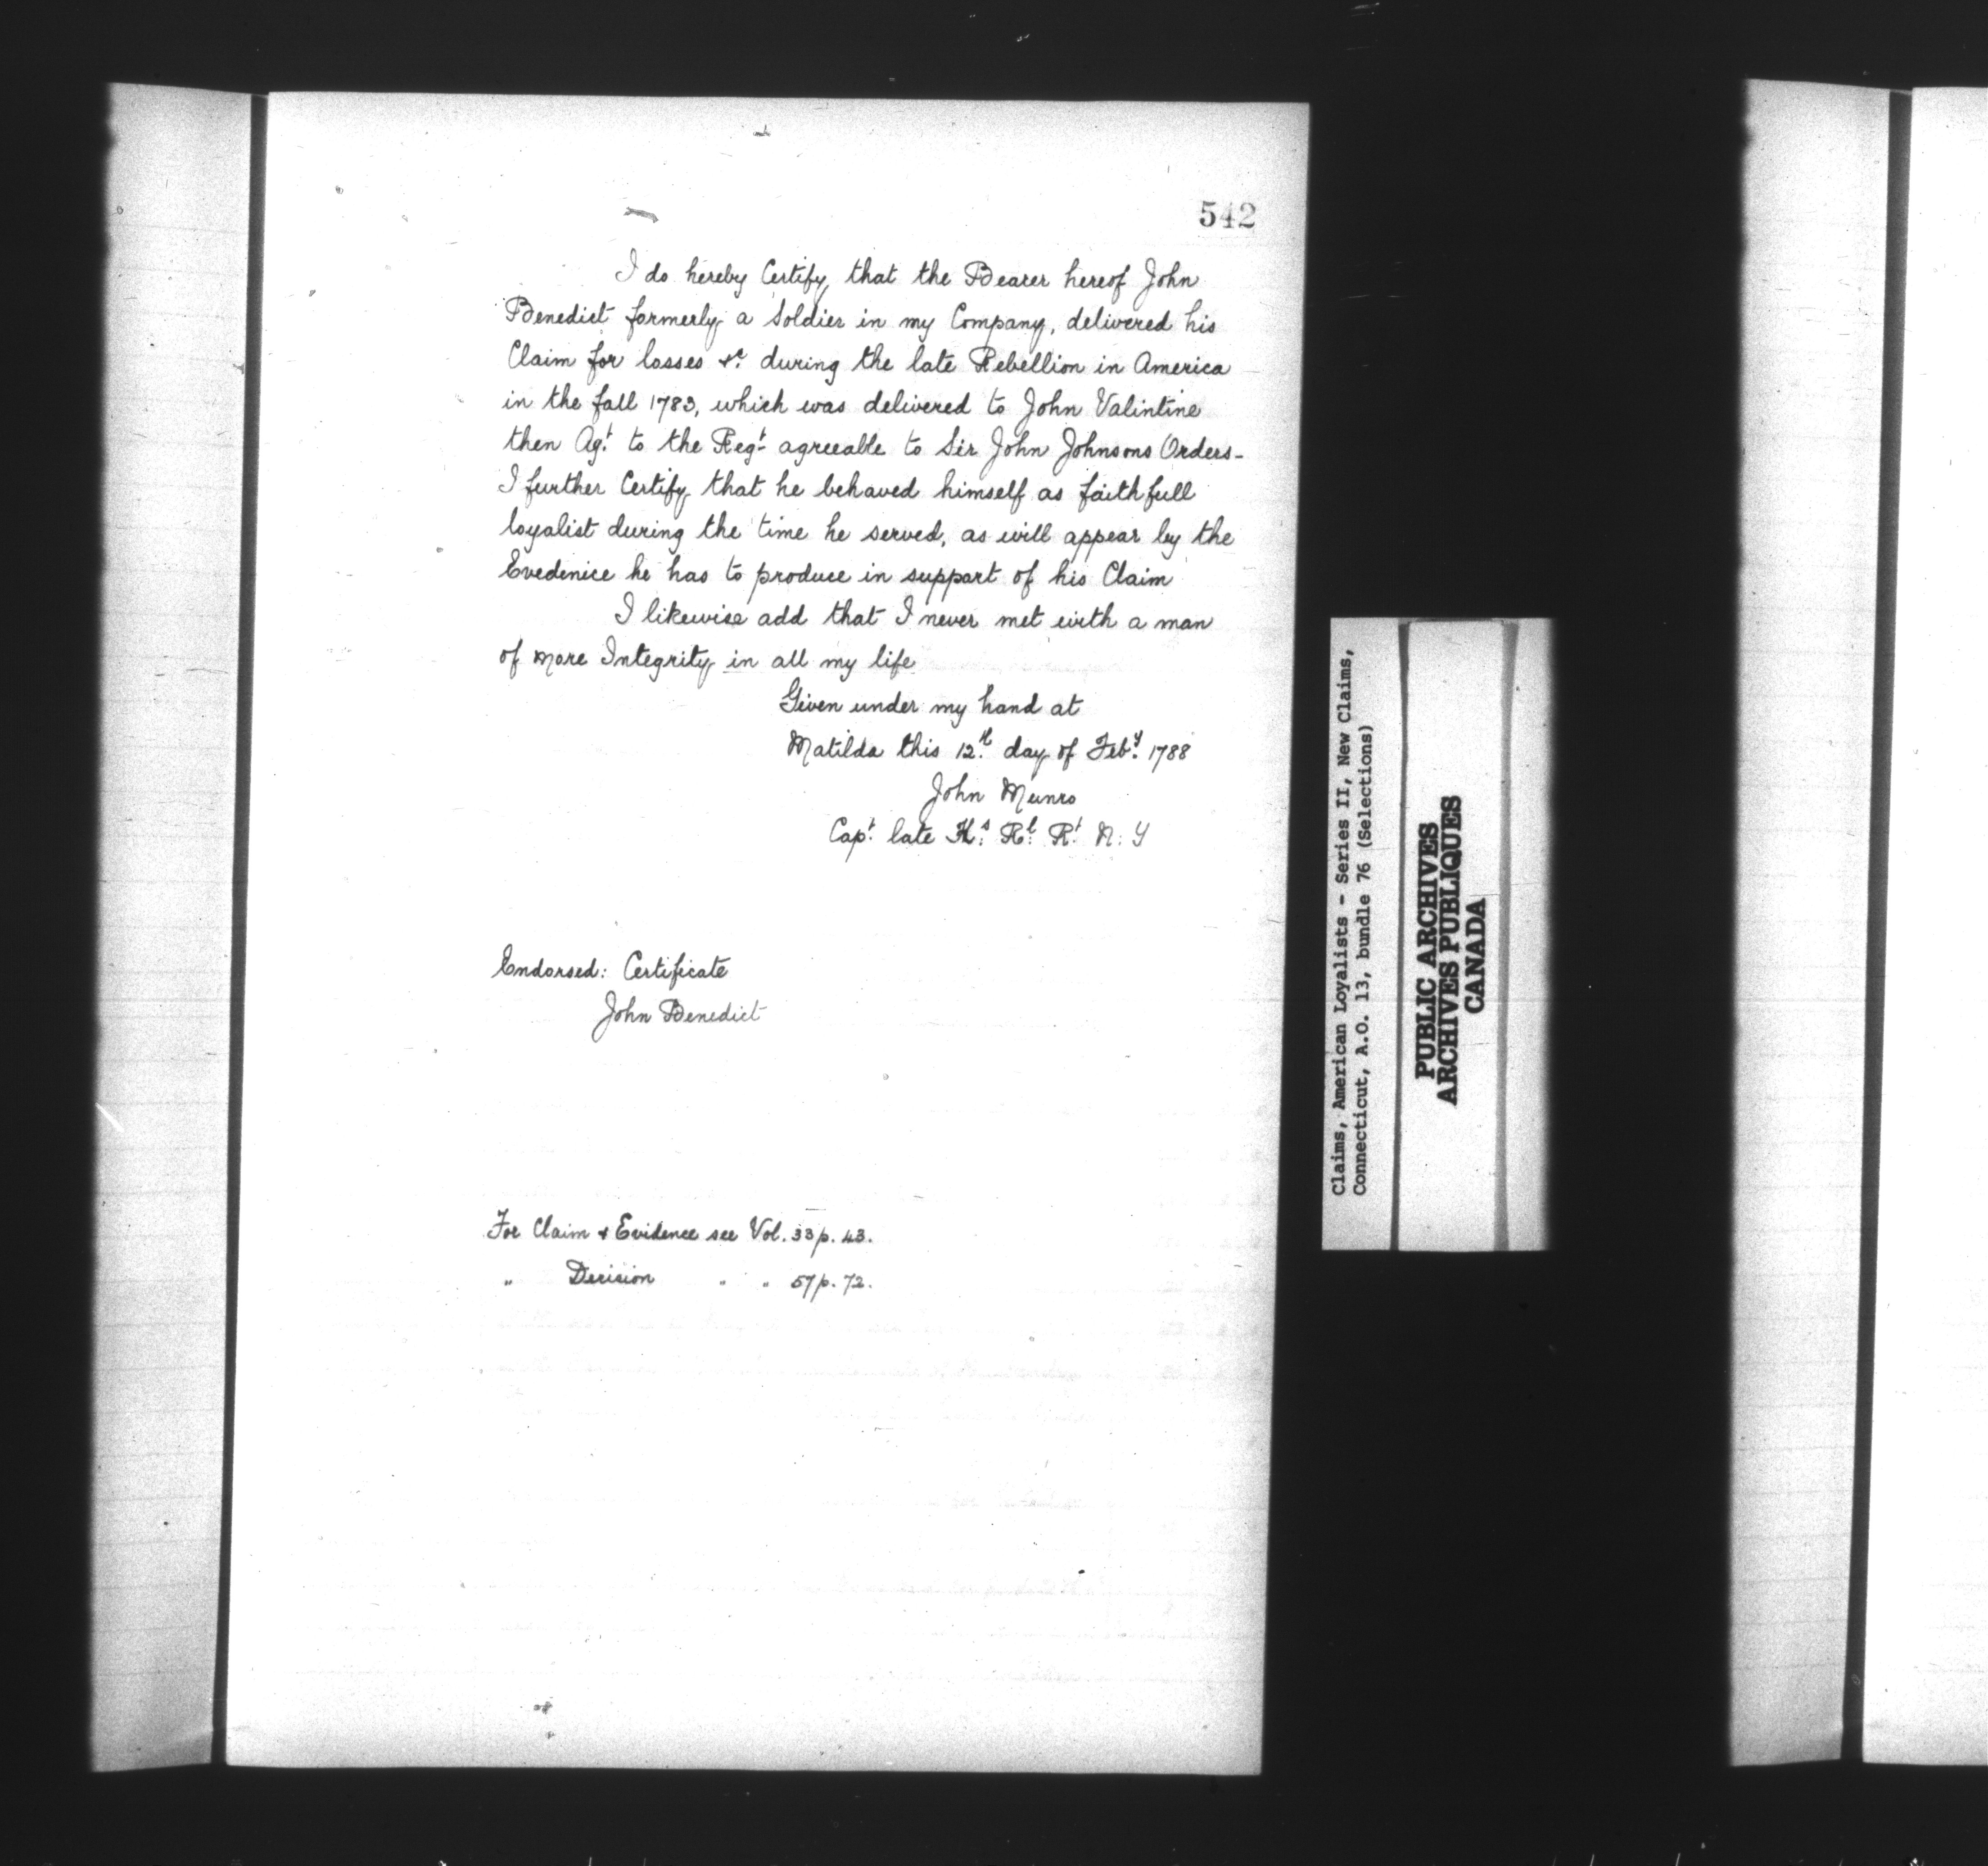 542
I do hereby Certify, that the Bearer hereof John
Benedict formerly a Soldier in my Company, delivered his
Claim for losses &c. during the late Rebellion in America
in the fall 1783, which was delivered to John Valintine
then Agt. to the Regt. agreeable to Sir John Johnsons Orders-
I further Certify that he behaved himself as faithfull
loyalist during the time he served, as will appear by the
Evedenice he has to produce in support of his Claim
I likewise add that I never met with a man
of more Integrity in all my life
Given under my hand at
Matilda this 12th. day of Feby. 1788
John Munro
Capt. late Ks. Rl. Rt. N: Y
Endorsed: Certificate
John Benedict
For Claim & Evidence see Vol. 33 p. 43.
" Decision " " 57 p. 72.
Claims, American Loyalists - Series II, New Claims,
Connecticut, A.O. 13, bundle 76 (Selections)
PUBLIC ARCHIVES
ARCHIVES PUBLIQUES
CANADA